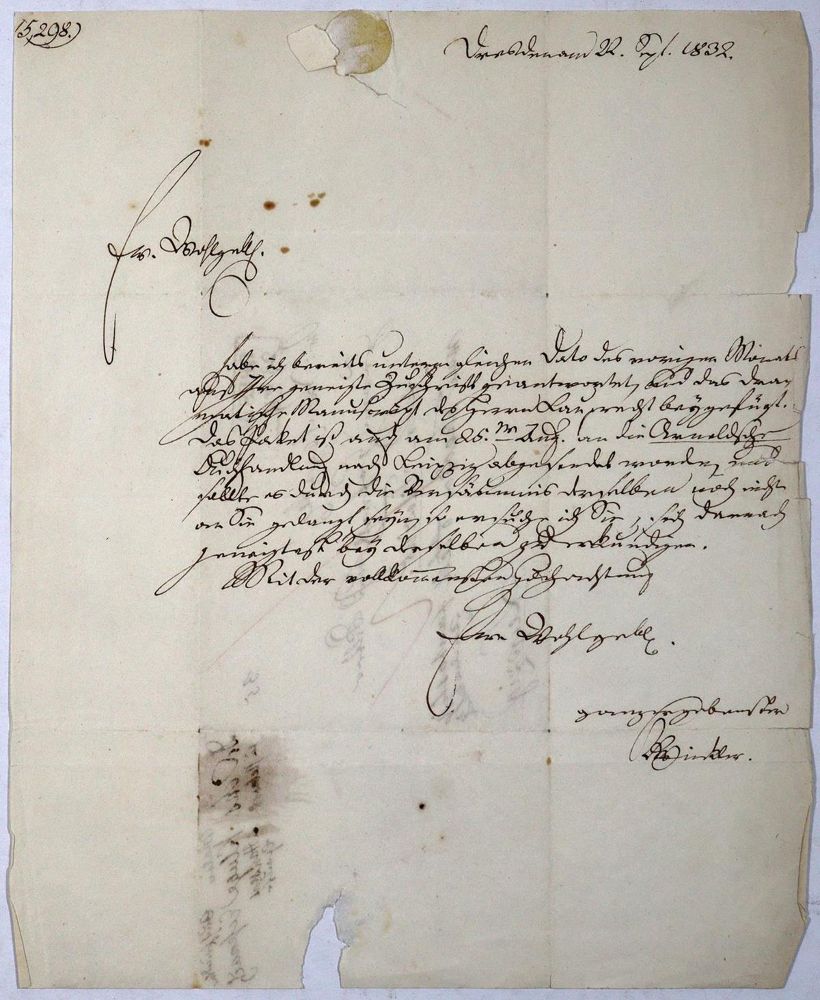 15,298.)
Dresden am 22. Sept. 1832.
Ew. Wohlgeb.
habe ich bereits unterm gleichen Dato des vorigen Monats
auf Ihre geneigte Zuschrift geantwortet, und das dra-
matische Manuscript des Herrn beygefügt.
Das Paket ist auch am 26. Aug. an die Arnoldsche
Buchhandlung nach Leipzig abgesendet worden, und
sollte es durch die Versäumnis derselben noch nicht
an Sie gelangt seyn, so ersuche ich Sie, sich darnach
geneigtest bey derselben zu erkundigen.
Mit der vollkommensten Hochachtung
Ew. Wohlgeb.
ganz ergebenster
Winkler.